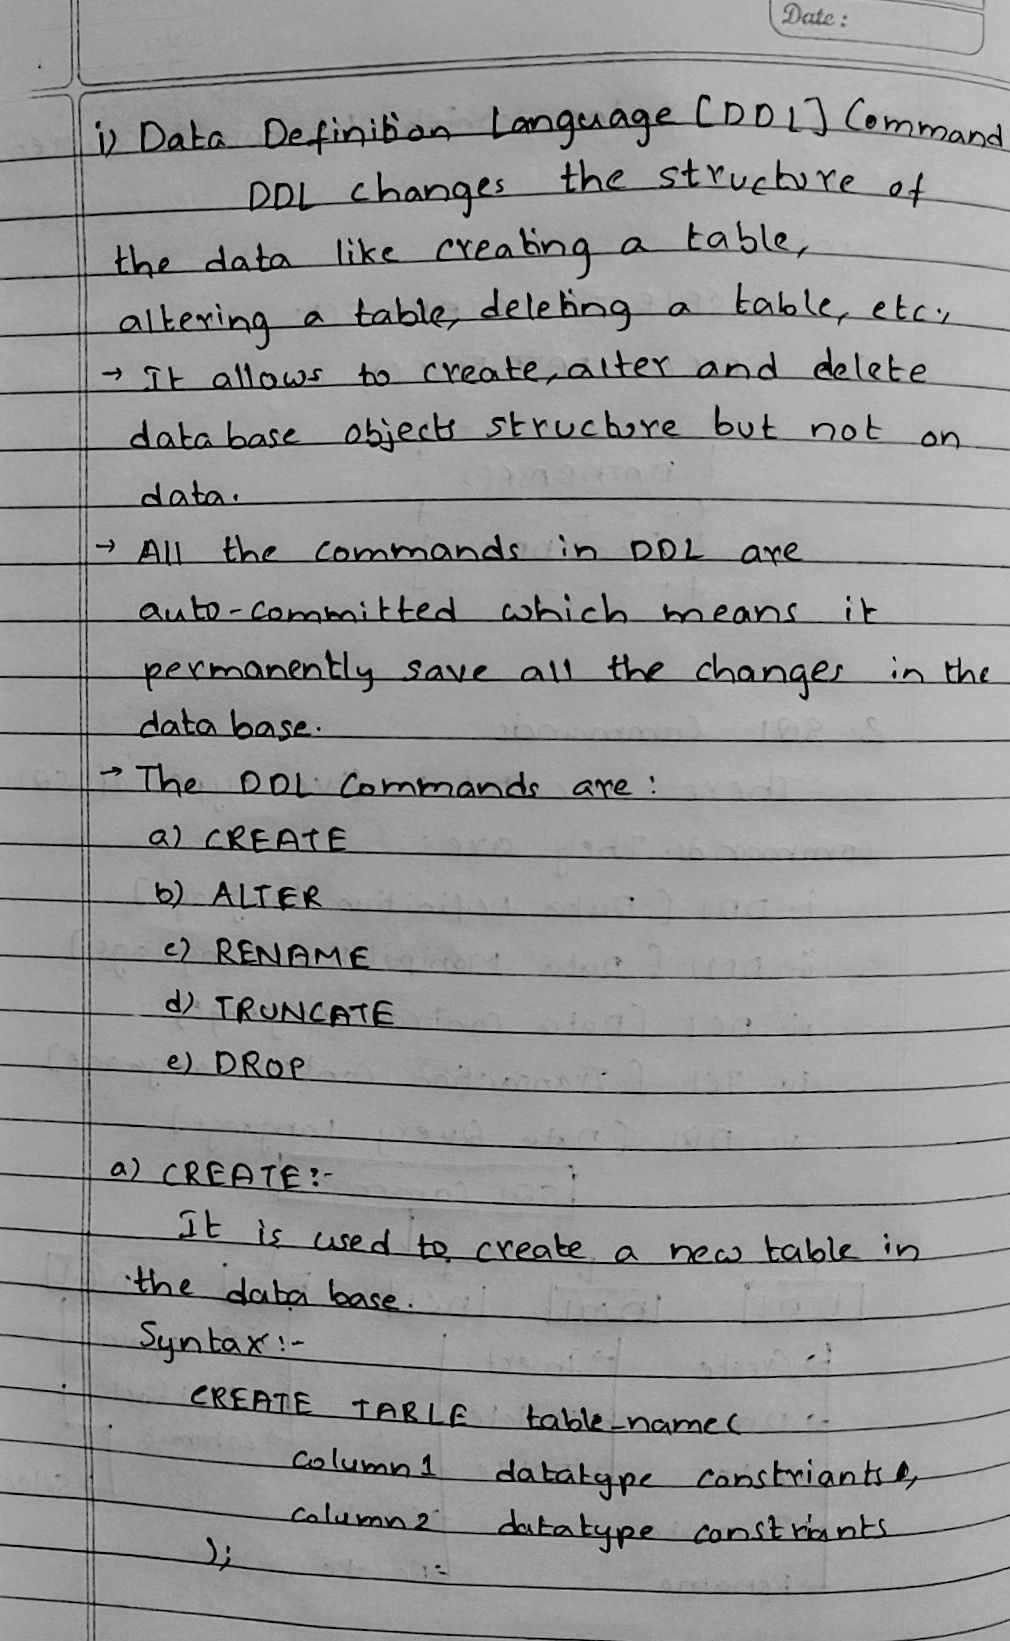 Date :
i) Data Definition Language [DDL] Command
DDL changes the structure of
the data like creating a table,
altering a table, deleting a table, etc.,
→ It allows to create, alter and delete
data base objects structure but not on
data.
→ All the commands in DDL are
auto-committed which means it
permanently save all the changes in the
data base.
→ The DDL Commands are :
a) CREATE
b) ALTER
c) RENAME
d) TRUNCATE
e) DROP
a) CREATE :-
It is used to create a new table in
the data base.
Syntax :-
CREATE TABLE table_name(
column1 datatype constriants,
column2 datatype constriants
);